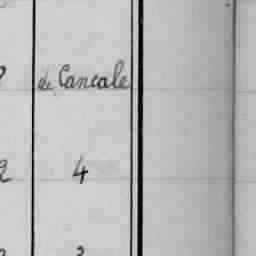 de Cancale
2 4